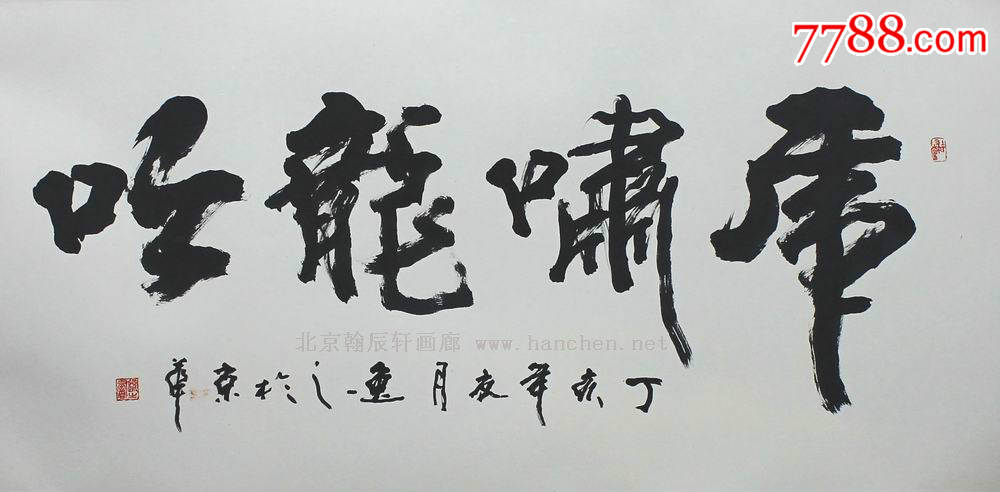 7788.com
虎嘯龍吟
北京翰辰轩画廊 www.hanchen.net
丁亥年夏月之於京華